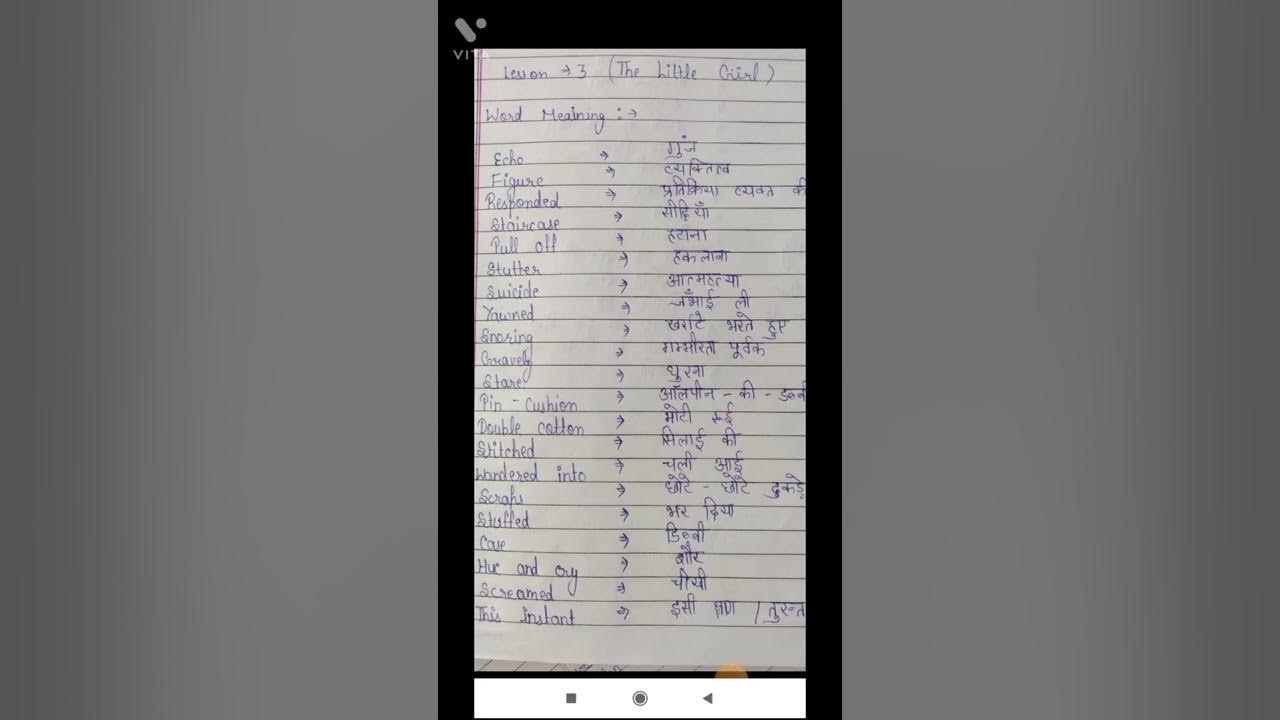 VITA
Lesson → 3 (The Little Girl)
Word Meaining :→
Echo ⇒ गुंज
Figure ⇒ व्यक्तित्व
Responded ⇒ प्रतिक्रिया व्यक्त की
Staircase ⇒ सीढ़ियाँ
Pull off ⇒ हटाना
Stutter ⇒ हकलाना
Suicide ⇒ आत्महत्या
Yawned ⇒ जँभाई ली
Snoring ⇒ खर्राटे भरते हुए
Gravely ⇒ गम्भीरता पूर्वक
Stare ⇒ घुरना
Pin - cushion ⇒ ऑलपीन - की - डब्बी
Double cotton ⇒ मोटी रूई
Stitched ⇒ सिलाई की
Wandered into ⇒ चली आई
Scraps ⇒ छोटे - छोटे टुकड़े
Stuffed ⇒ भर दिया
Case ⇒ डिब्बी
Hue and cry ⇒ शौर
Screamed ⇒ चीखी
This instant ⇒ इसी क्षण / तुरन्त